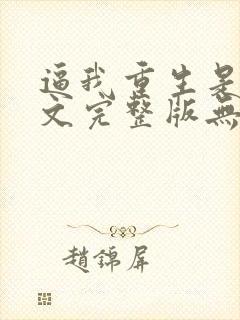 逼我重生是
文完整版無
趙錦屏